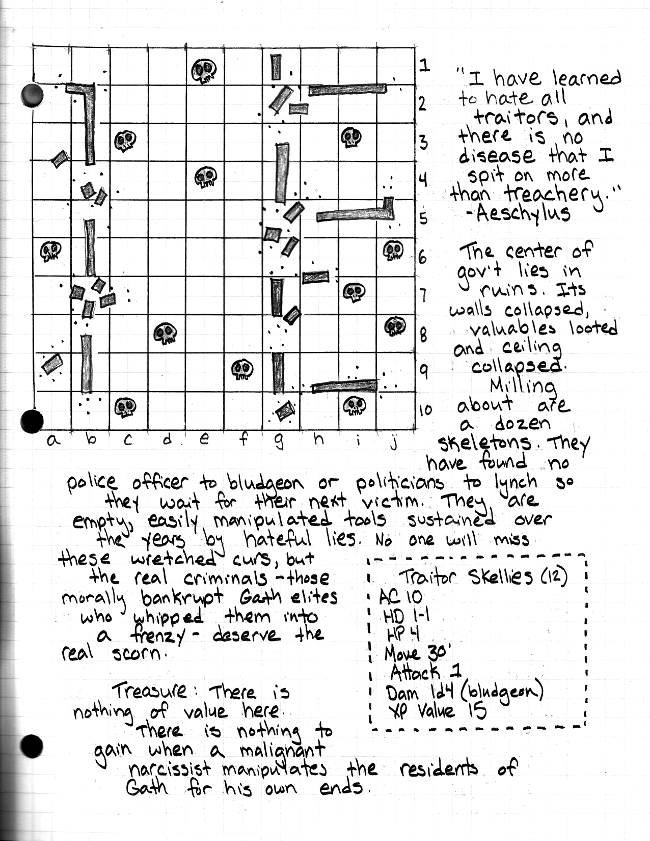 1
2
3
4
5
6
7
8
9
10
a b c d e f g h i j
"I have learned
to hate all
traitors, and
there is no
disease that I
spit on more
than treachery."
-Aeschylus
The center of
gov't lies in
ruins. Its
walls collapsed,
valuables looted
and ceiling
collapsed.
Milling
about are
a dozen
skeletons. They
have found no
police officer to bludgeon or politicians to lynch so
they wait for their next victim. They are
empty, easily manipulated tools sustained over
the years by hateful lies. No one will miss
these wretched curs, but
the real criminals - those
morally bankrupt Gath elites
who whipped them into
a frenzy - deserve the
real scorn.
Traitor Skellies (12)
AC 10
HD 1-1
HP 4
Move 30'
Attack 1
Dam 1d4 (bludgeon)
XP Value 15
Treasure: There is
nothing of value here.
There is nothing to
gain when a malignant
narcissist manipulates the residents of
Gath for his own ends.